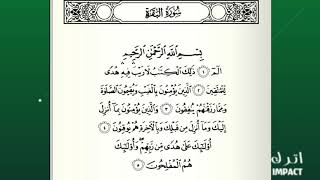 سُورَةُ الْبَقَرَةِ
بِسْمِ اللَّهِ الرَّحْمَٰنِ الرَّحِيمِ
الٓمٓ ١ ذَٰلِكَ الْكِتَٰبُ لَا رَيْبَ فِيهِ هُدًى
لِّلْمُتَّقِينَ ٢ الَّذِينَ يُؤْمِنُونَ بِالْغَيْبِ وَيُقِيمُونَ الصَّلَوٰةَ
وَمِمَّا رَزَقْنَٰهُمْ يُنفِقُونَ ٣ وَالَّذِينَ يُؤْمِنُونَ بِمَا أُنزِلَ
إِلَيْكَ وَمَا أُنزِلَ مِن قَبْلِكَ وَبِالْآخِرَةِ هُمْ يُوقِنُونَ ٤
أُوْلَٰئِكَ عَلَىٰ هُدًى مِّن رَّبِّهِمْ وَأُوْلَٰئِكَ
هُمُ الْمُفْلِحُونَ ٥
اترك
IMPACT